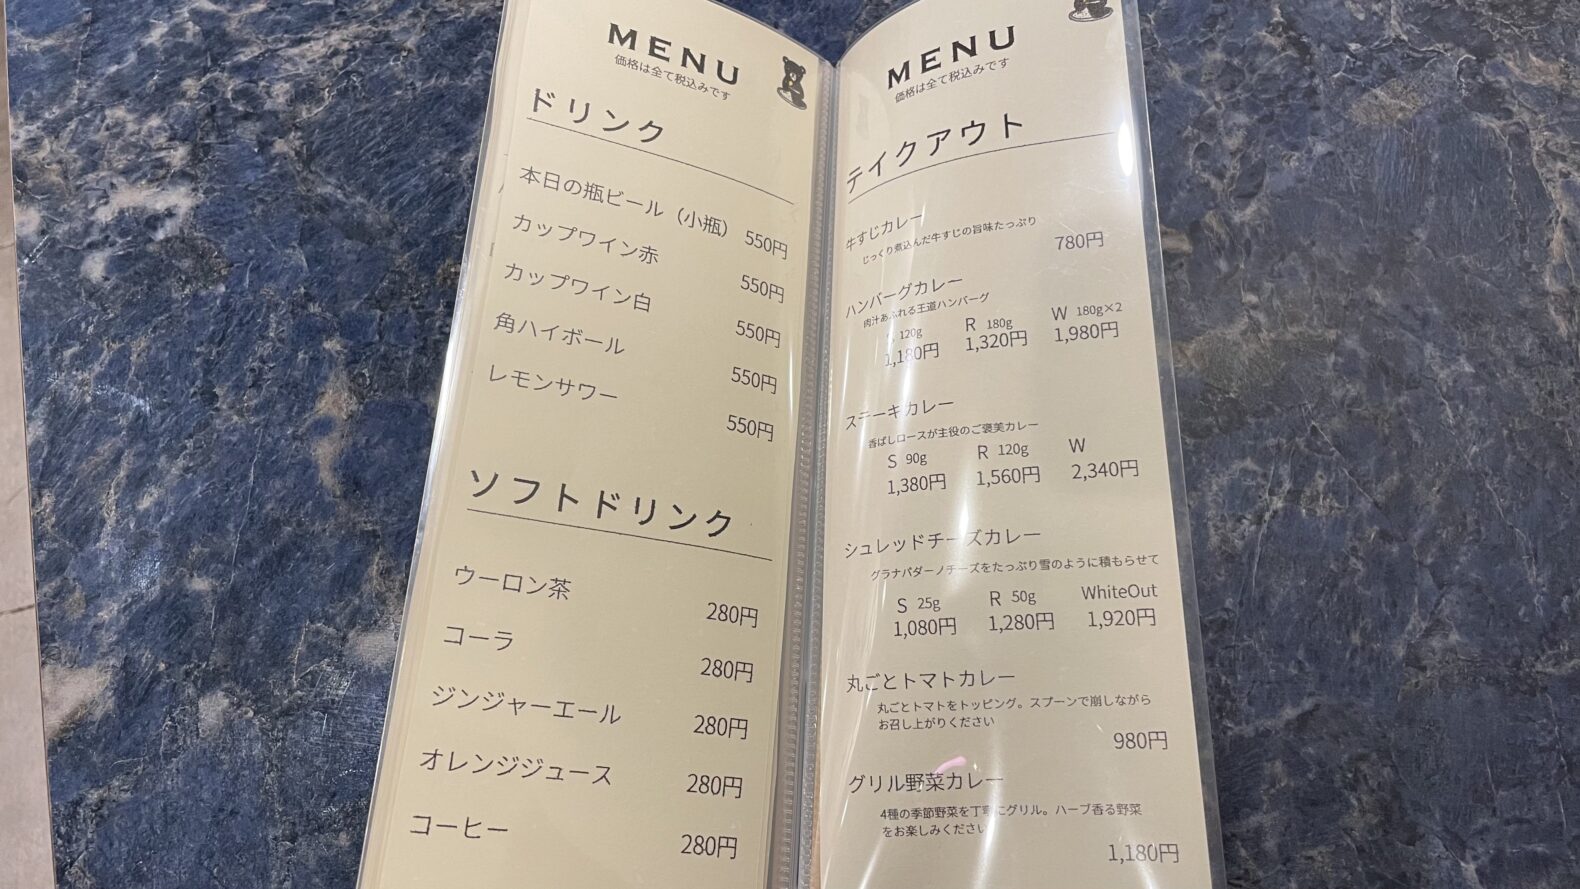 MENU
価格は全て税込みです
ドリンク
本日の瓶ビール（小瓶） 550円
カップワイン赤 550円
カップワイン白 550円
角ハイボール 550円
レモンサワー 550円
ソフトドリンク
ウーロン茶 280円
コーラ 280円
ジンジャーエール 280円
オレンジジュース 280円
コーヒー 280円
MENU
価格は全て税込みです
テイクアウト
牛すじカレー
じっくり煮込んだ牛すじの旨味たっぷり
780円
ハンバーグカレー
肉汁あふれる王道ハンバーグ
120g R 180g W 180g×2
1,180円 1,320円 1,980円
ステーキカレー
香ばしロースが主役のご褒美カレー
S 90g R 120g W
1,380円 1,560円 2,340円
シュレッドチーズカレー
グラナパダーノチーズをたっぷり雪のように積もらせて
S 25g R 50g WhiteOut
1,080円 1,280円 1,920円
丸ごとトマトカレー
丸ごとトマトをトッピング。スプーンで崩しながら
お召し上がりください
980円
グリル野菜カレー
4種の季節野菜を丁寧にグリル。ハーブ香る野菜
をお楽しみください
1,180円